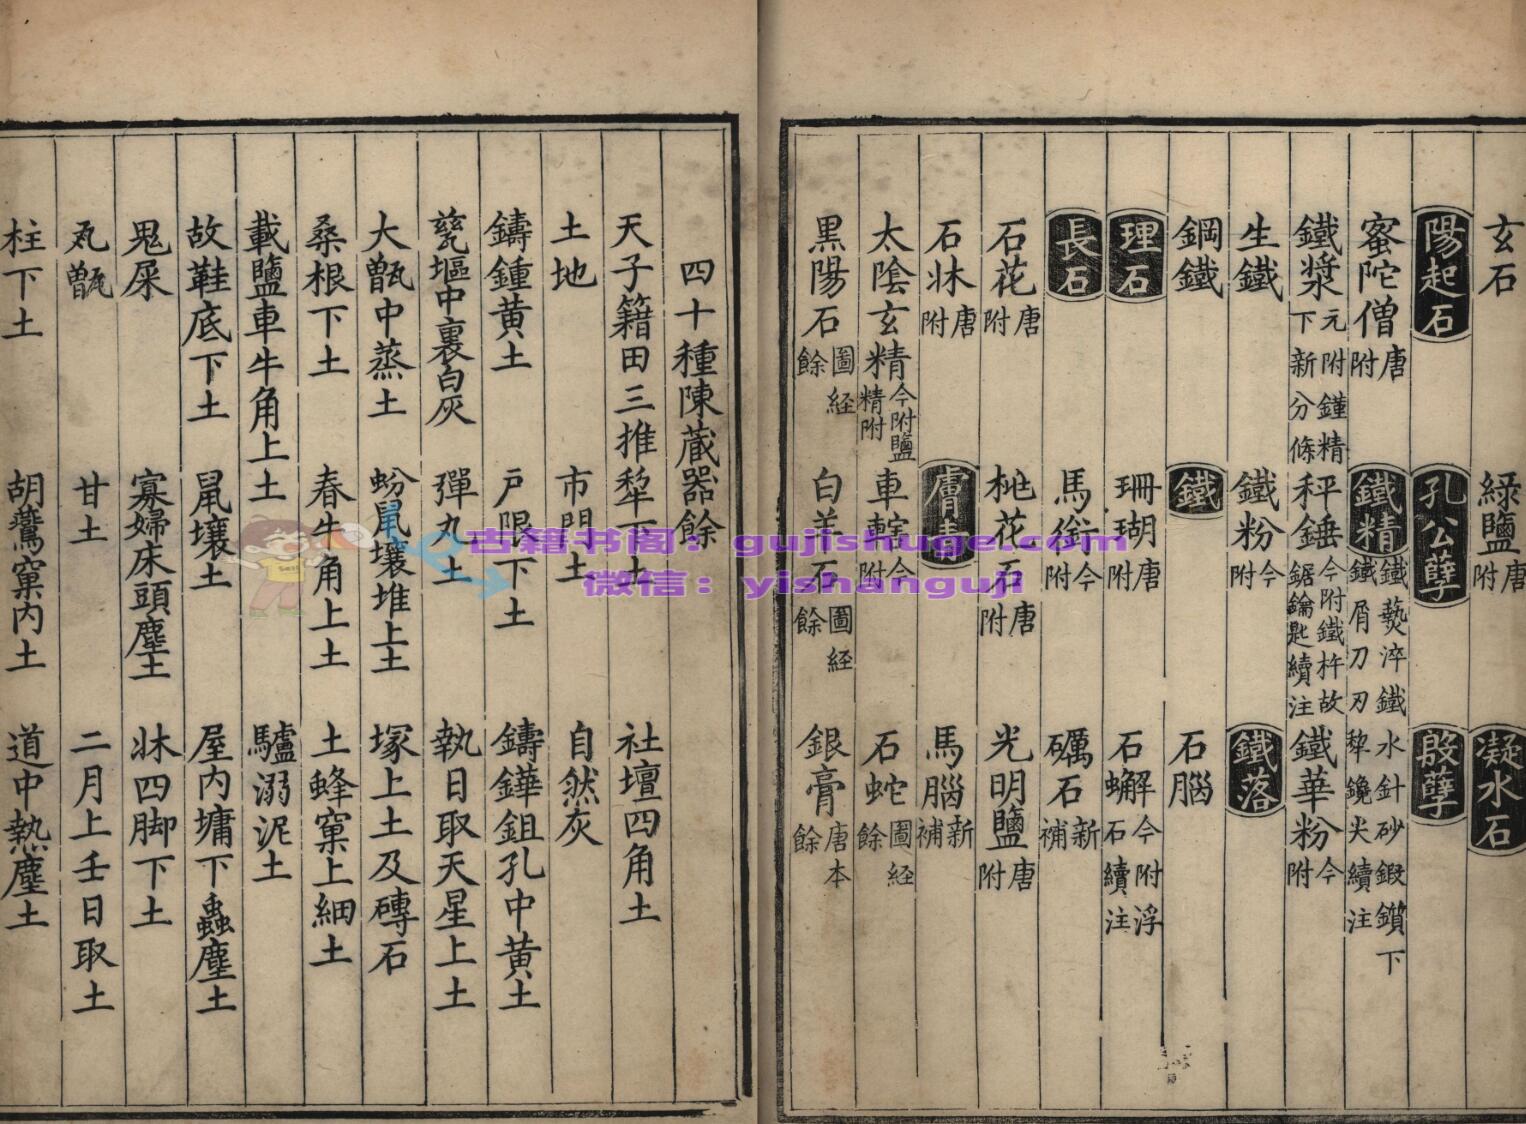 玄石 綠鹽唐附 凝水石
陽起石 孔公孽 殷孽
蜜陀僧唐附 鐵精鐵爇淬鐵鐵屑刀刃水針砂鍛鑕下犂鑱尖續注
鐵漿元附鍾精下新分條 秤錘今附鐵杵故鋸鑰匙續注 鐵華粉今附
生鐵 鐵粉今附 鐵落
鋼鐵 鐵 石腦
理石 珊瑚唐附 石蠏今附浮石續注
長石 馬銜今附 礪石新補
石花唐附 桃花石唐附 光明鹽唐附
石牀唐附 膚青 馬腦新補
太陰玄精今附鹽精附 車轄今附 石蛇圖經餘
黑陽石圖經餘 白羊石圖經餘 銀膏唐本餘
四十種陳藏器餘
天子籍田三推犂下土 社壇四角土
土地 市門土 自然灰
鑄鍾黃土 戶限下土 鑄鏵鉏孔中黃土
甆塸中裏白灰 彈丸土 執日取天星上土
大甑中蒸土 蚡鼠壤堆上土 塚上土及磚石
桑根下土 春牛角上土 土蜂窠上細土
載鹽車牛角上土 驢溺泥土
故鞋底下土 鼠壤土 屋内墉下蟲塵土
鬼屎 寡婦床頭塵土 牀四脚下土
瓦甑 甘土 二月上壬日取土
柱下土 胡鷰窠内土 道中熱塵土
古籍书阁：gujishuge.com
微信：yishanguji